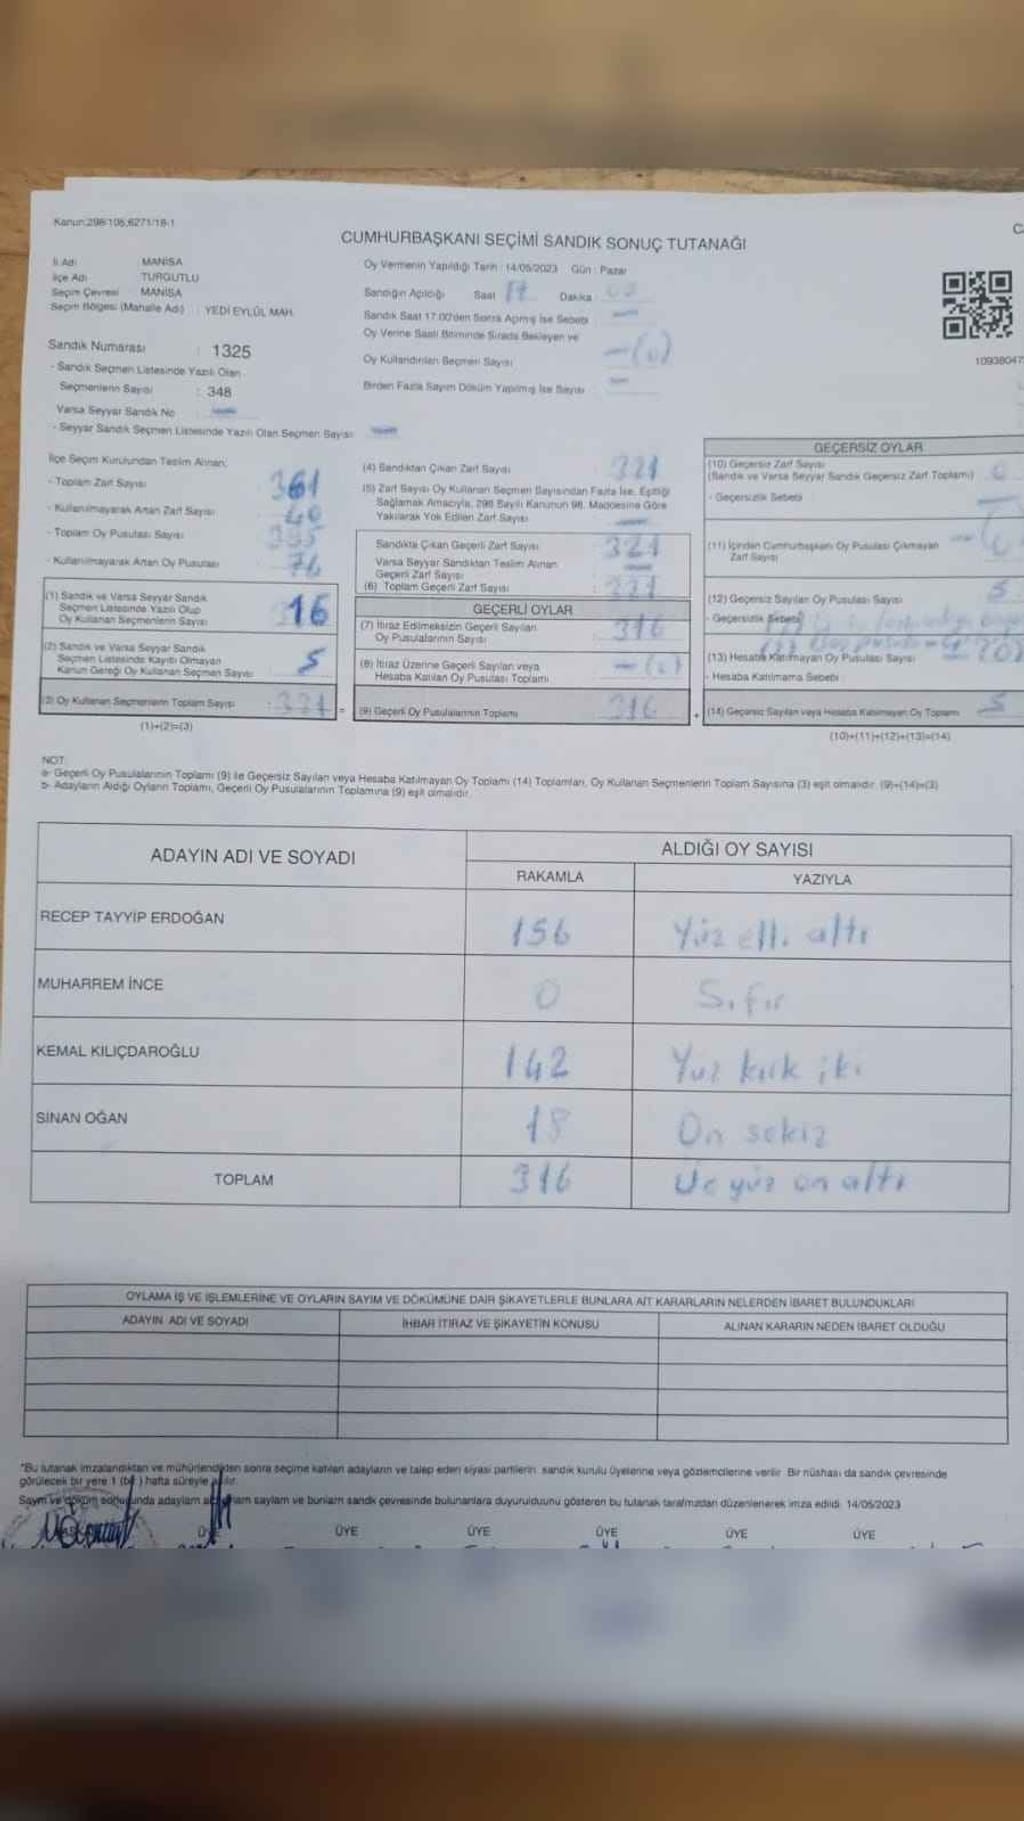 Kanun:298/105,6271/18-1
CUMHURBAŞKANI SEÇİMİ SANDIK SONUÇ TUTANAĞI
İl Adı MANİSA
İlçe Adı TURGUTLU
Seçim Çevresi MANİSA
Seçim Bölgesi (Mahalle Adı) : YEDİ EYLÜL MAH.
Sandık Numarası : 1325
- Sandık Seçmen Listesinde Yazılı Olan
Seçmenlerin Sayısı : 348
Varsa Seyyar Sandık No
- Seyyar Sandık Seçmen Listesinde Yazılı Olan Seçmen Sayısı
Oy Vermenin Yapıldığı Tarih : 14/05/2023 Gün : Pazar
Sandığın Açıldığı Saat 17 Dakika
Sandık Saat 17.00'den Sonra Açmış İse Sebebi
Oy Verme Saati Bitiminde Sırada Bekleyen ve
Oy Kullandırılan Seçmen Sayısı -(0)
Birden Fazla Sayım Döküm Yapılmış İse Sayısı
10938047
İlçe Seçim Kurulundan Teslim Alınan;
- Toplam Zarf Sayısı 361
- Kullanılmayarak Artan Zarf Sayısı 40
- Toplam Oy Pusulası Sayısı 395
- Kullanılmayarak Artan Oy Pusulası 74
(1) Sandık ve Varsa Seyyar Sandık
Seçmen Listesinde Yazılı Olup
Oy Kullanan Seçmenlerin Sayısı 316
(2) Sandık ve Varsa Seyyar Sandık
Seçmen Listesinde Kayıtlı Olmayan
Kanun Gereği Oy Kullanan Seçmen Sayısı 5
(3) Oy Kullanan Seçmenlerin Toplam Sayısı : 321
(1)+(2)=(3)
(4) Sandıktan Çıkan Zarf Sayısı 321
(5) Zarf Sayısı Oy Kullanan Seçmen Sayısından Fazla İse, Eşitliği
Sağlamak Amacıyla, 298 Sayılı Kanunun 98. Maddesine Göre
Yakılarak Yok Edilen Zarf Sayısı
Sandıkta Çıkan Geçerli Zarf Sayısı 321
Varsa Seyyar Sandıktan Teslim Alınan
Geçerli Zarf Sayısı
(6) Toplam Geçerli Zarf Sayısı 321
GEÇERLİ OYLAR
(7) İtiraz Edilmeksizin Geçerli Sayılan
Oy Pusulalarının Sayısı 316
(8) İtiraz Üzerine Geçerli Sayılan veya
Hesaba Katılan Oy Pusulası Toplamı -(0)
=
(9) Geçerli Oy Pusulalarının Toplamı 316
GEÇERSİZ OYLAR
(10) Geçersiz Zarf Sayısı
(Sandık ve Varsa Seyyar Sandık Geçersiz Zarf Toplamı)
- Geçersizlik Sebebi
(11) İçinden Cumhurbaşkanı Oy Pusulası Çıkmayan
Zarf Sayısı
(12) Geçersiz Sayılan Oy Pusulası Sayısı 5
- Geçersizlik Sebebi
(13) Hesaba Katılmayan Oy Pusulası Sayısı
- Hesaba Katılmama Sebebi
+
(14) Geçersiz Sayılan veya Hesaba Katılmayan Oy Toplamı 5
(10)+(11)+(12)+(13)=(14)
NOT:
a- Geçerli Oy Pusulalarının Toplamı (9) ile Geçersiz Sayılan veya Hesaba Katılmayan Oy Toplamı (14) Toplamları, Oy Kullanan Seçmenlerin Toplam Sayısına (3) eşit olmalıdır. (9)+(14)=(3)
b- Adayların Aldığı Oyların Toplamı, Geçerli Oy Pusulalarının Toplamına (9) eşit olmalıdır.
ADAYIN ADI VE SOYADI
ALDIĞI OY SAYISI
RAKAMLA YAZIYLA
RECEP TAYYİP ERDOĞAN 156 Yüz elli altı
MUHARREM İNCE 0 Sıfır
KEMAL KILIÇDAROĞLU 142 Yüz kırk iki
SİNAN OĞAN 18 On sekiz
TOPLAM 316 Üç yüz on altı
OYLAMA İŞ VE İŞLEMLERİNE VE OYLARIN SAYIM VE DÖKÜMÜNE DAİR ŞİKAYETLERLE BUNLARA AİT KARARLARIN NELERDEN İBARET BULUNDUKLARI
ADAYIN ADI VE SOYADI İHBAR İTİRAZ VE ŞİKAYETİN KONUSU ALINAN KARARIN NEDEN İBARET OLDUĞU
"Bu tutanak imzalandıktan ve mühürlendikten sonra seçime katılan adayların ve talep eden siyasi partilerin sandık kurulu üyelerine veya gözlemcilerine verilir. Bir nüshası da sandık çevresinde
görülecek bir yere 1 (bir) hafta süreyle asılır.
Sayım ve döküm sonucunda adayların saylam ve bunların sandık çevresinde bulunanlara duyurulduğunu gösteren bu tutanak tarafımızdan düzenlenerek imza edildi. 14/05/2023
ÜYE ÜYE ÜYE ÜYE ÜYE ÜYE